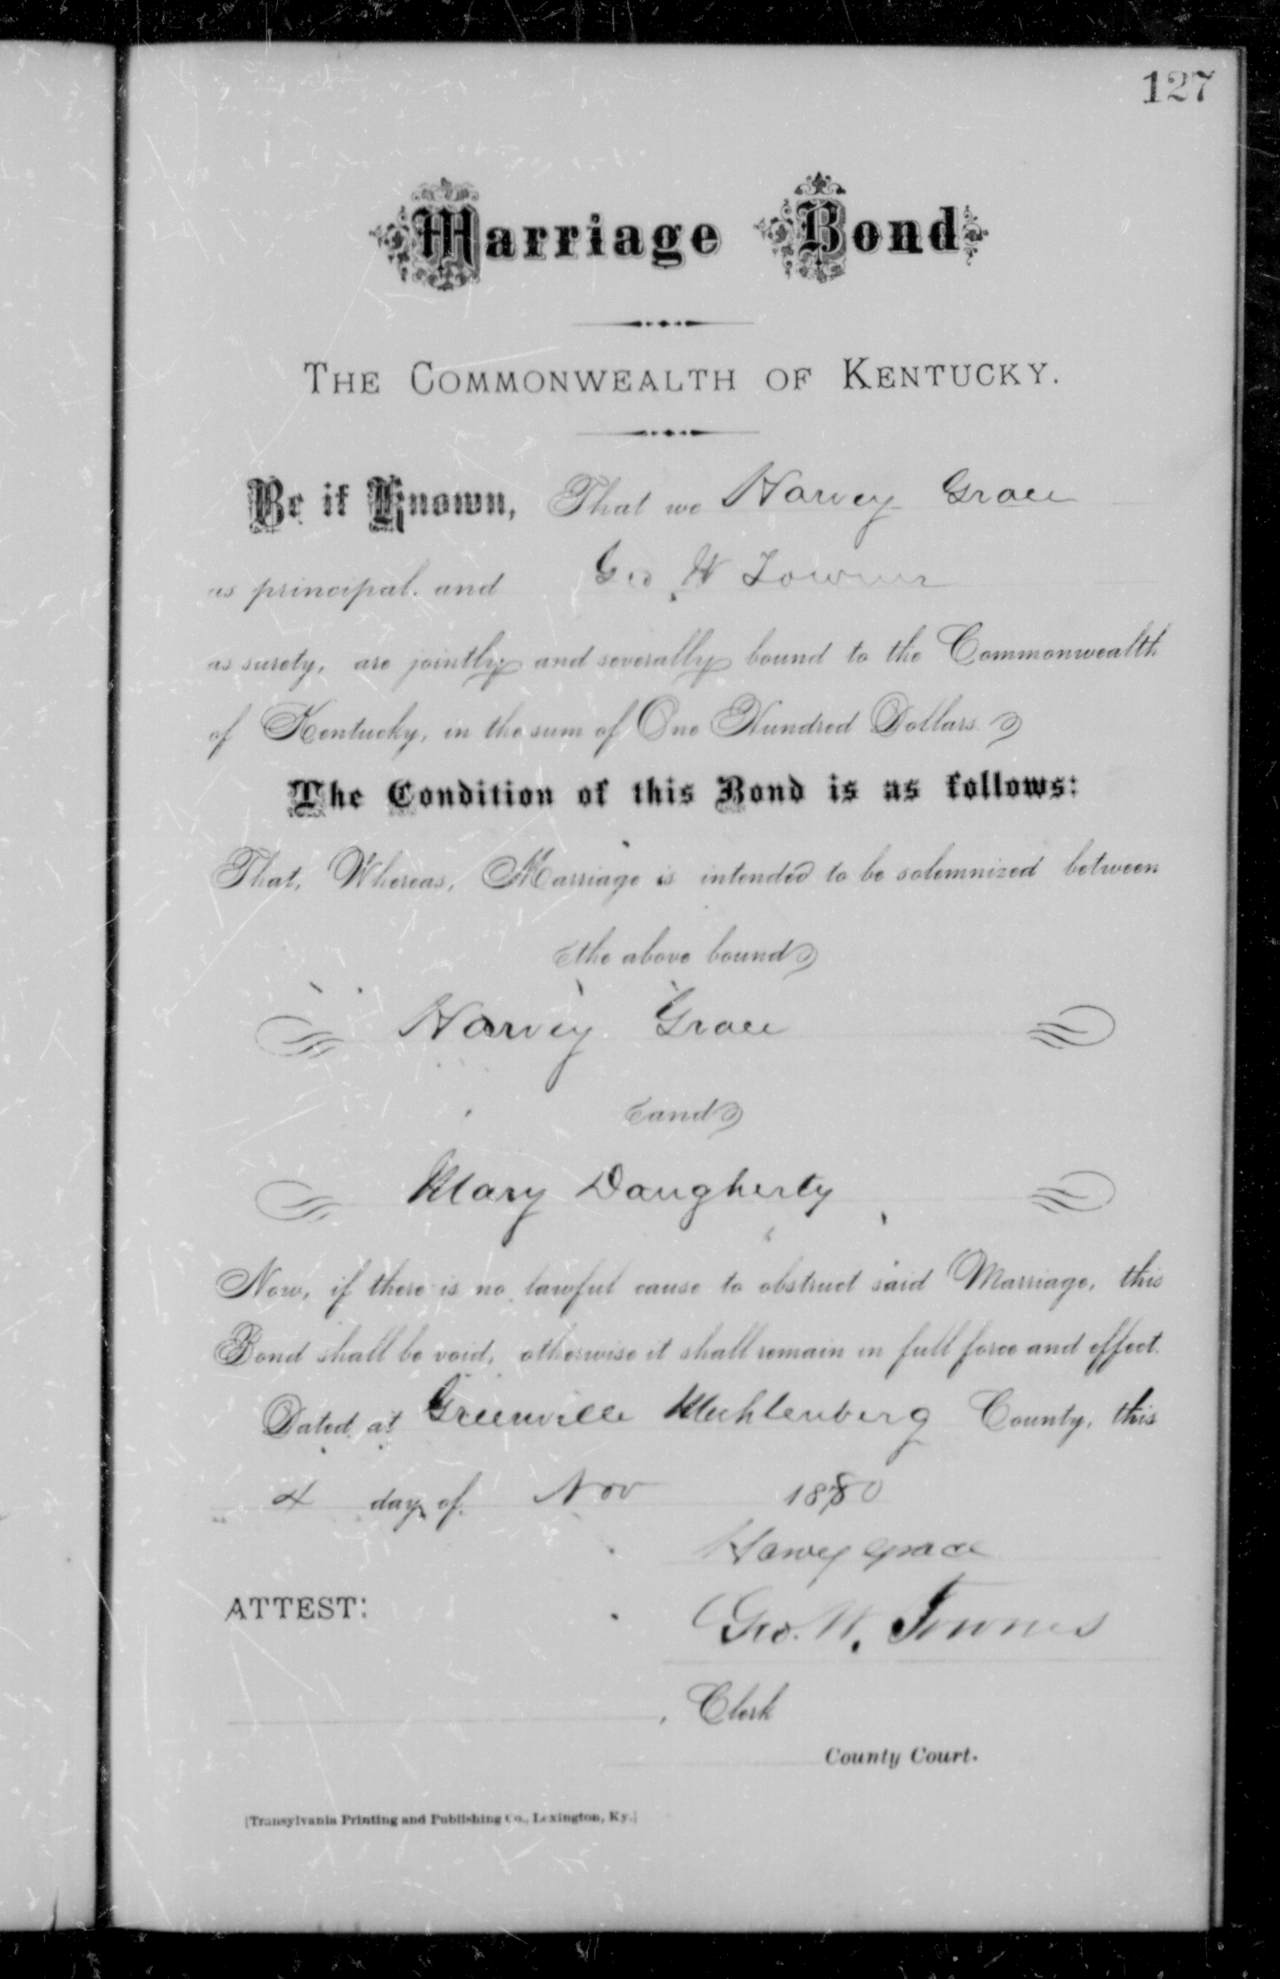 127
Marriage Bond
THE COMMONWEALTH OF KENTUCKY.
Be it Known, That we Harvey Grace
as principal, and Geo W Townes
as surety, are jointly and severally bound to the Commonwealth
of Kentucky, in the sum of One Hundred Dollars.
The Condition of this Bond is as follows:
That, Whereas, Marriage is intended to be solemnized between
the above bound
Harvey Grace
and
Mary Daugherty
Now, if there is no lawful cause to obstruct said Marriage, this
Bond shall be void, otherwise it shall remain in full force and effect.
Dated at Greenville Muhlenberg County, this
4 day of Nov 1880
Harvey Grace
ATTEST:
Geo. W. Townes
, Clerk
County Court.
[Transylvania Printing and Publishing Co., Lexington, Ky.]